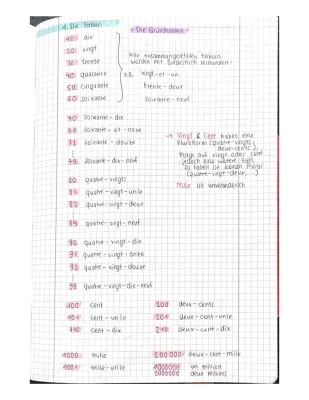 1. Die Zahlen
• Die Grundzahlen
10: dix
20: vingt
30: trente
40: quarante
50: cinquante
60: soixante
Alle zusammengesetzten Zahlen
werden mit Bindestrich verbunden:
z.B. vingt-et-un
trente-deux
soixante-neuf
70 soixante-dix
71 soixante-et-onze
72 soixante-douze
79 soixante-dix-neuf
→ Vingt & Cent haben eine
Pluralform (quatre-vingts,
deux-cents).
Folgt auf vingt oder cent
jedoch eine weitere Zahl,
so haben sie keinen Plural
(quatre-vingt-deux, ...)
Mille ist unveränderlich
80 quatre-vingts
81 quatre-vingt-un/e
82 quatre-vingt-deux
89 quatre-vingt-neuf
90 quatre-vingt-dix
91 quatre-vingt-onze
92 quatre-vingt-douze
99 quatre-vingt-dix-neuf
100: cent
200 deux-cents
101 cent-un/e
201 deux-cent-un/e
110 cent-dix
210 deux-cent-dix
1000: mille
200.000 deux-cent-mille
1001: mille-un/e
1000000 un million
2000000 deux millions